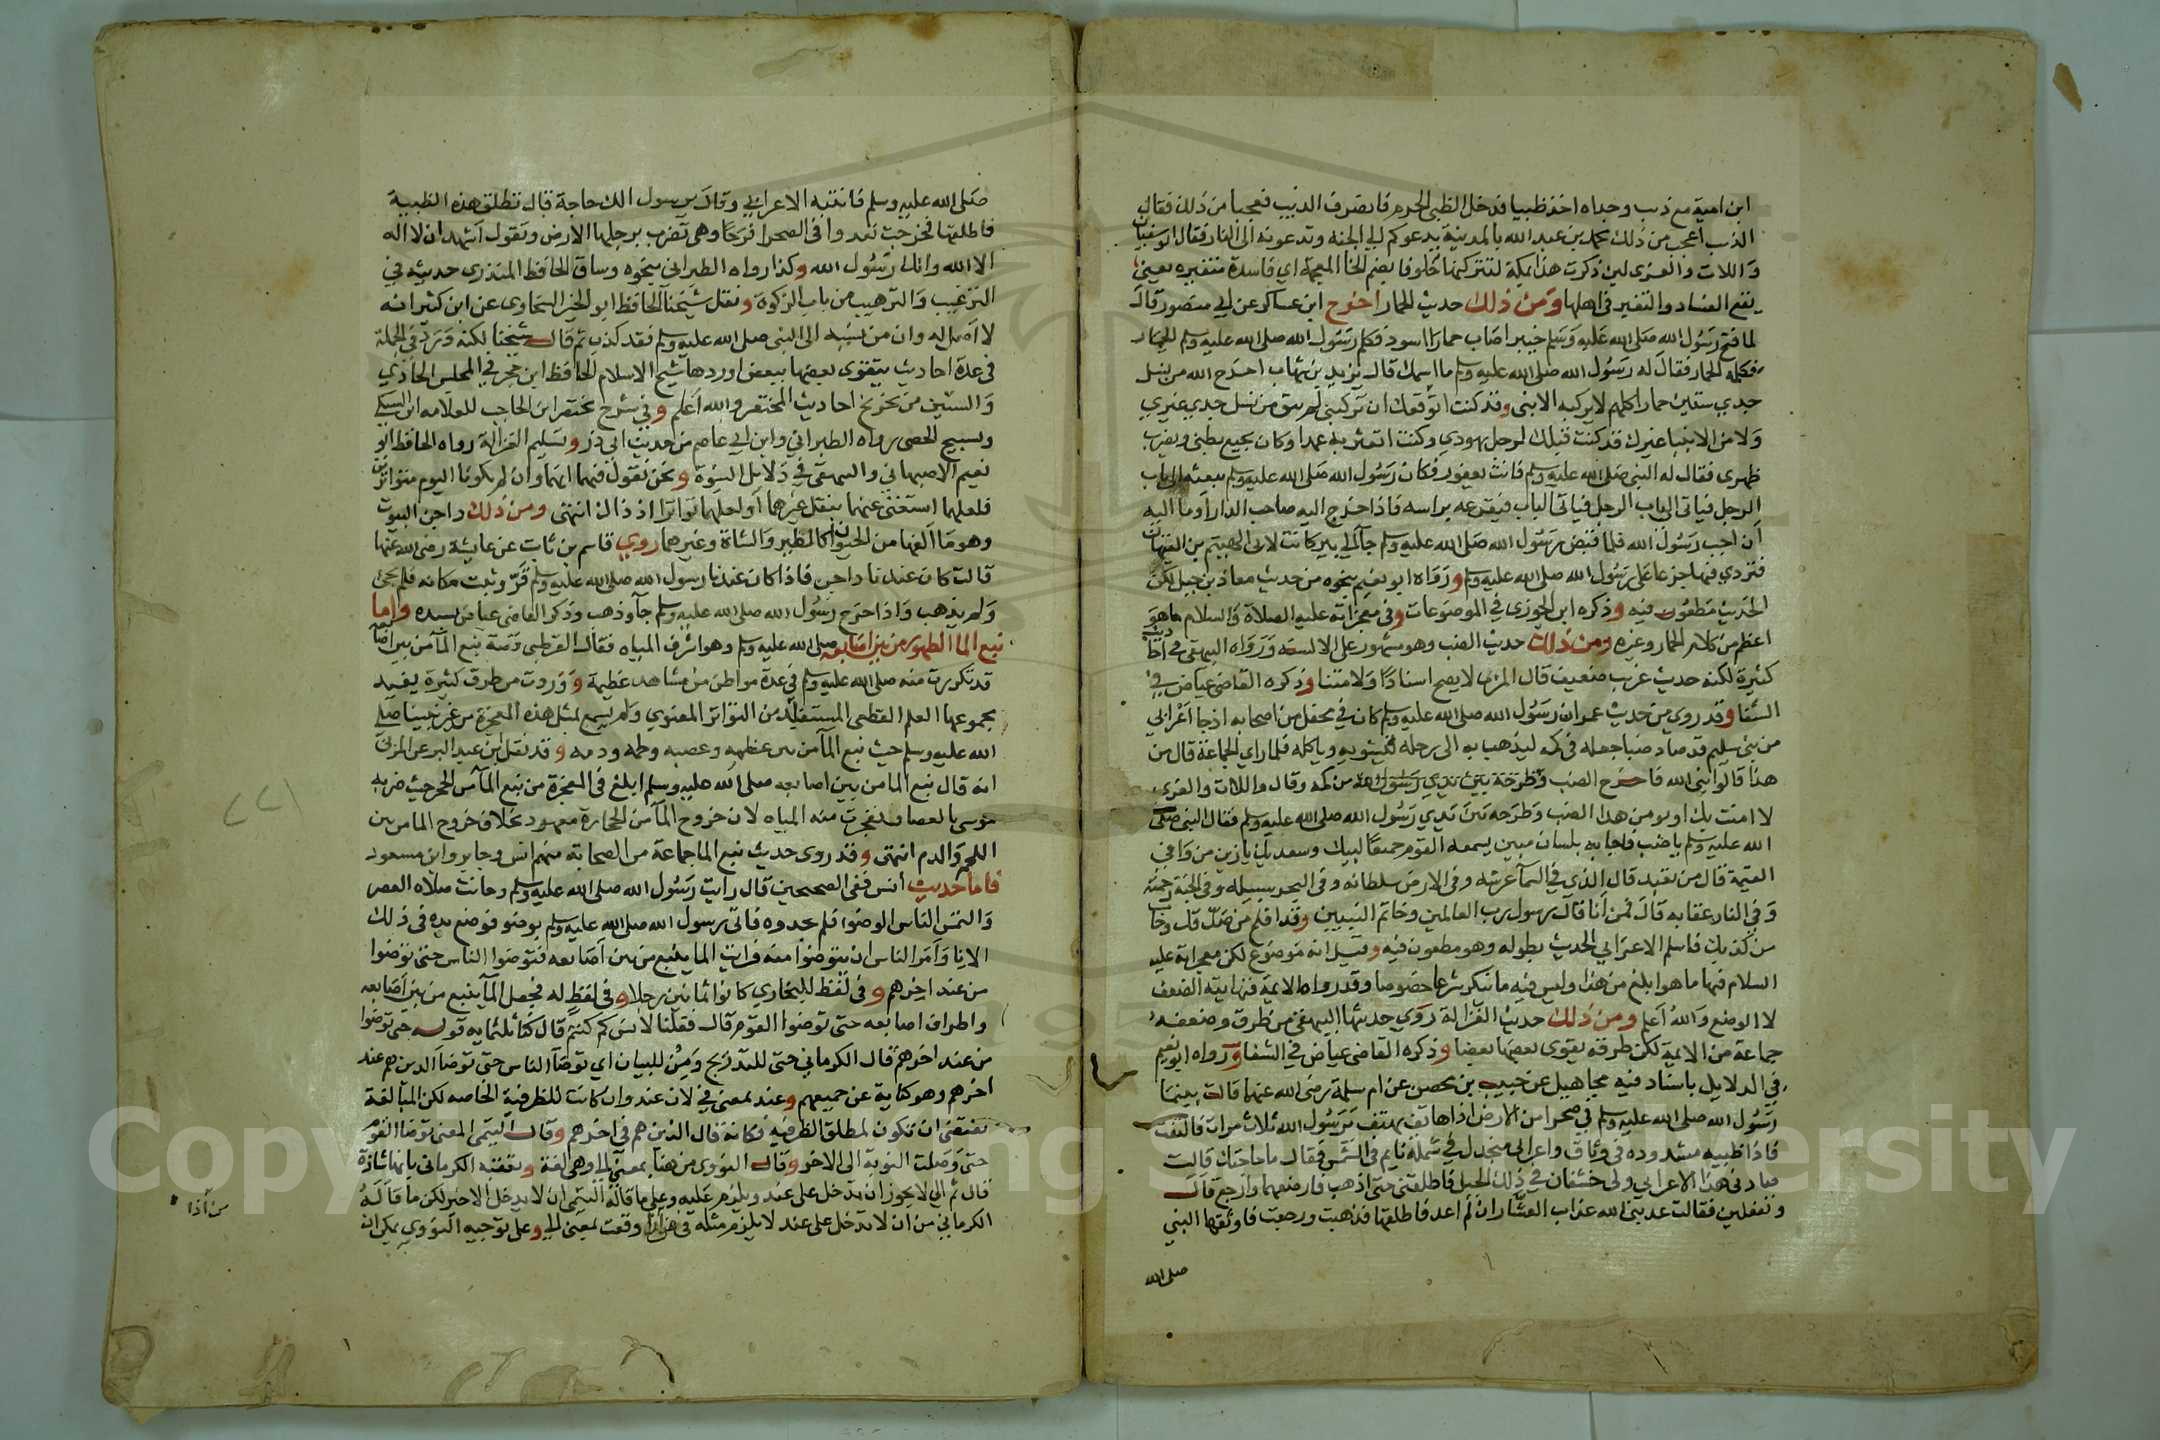 ابن امية مع ذيب وجداه اخذ ظبيا فدخل الظبى الحرم فانصرف الذيب فعجبا من ذلك فقال
الذيب أعجب من ذلك محمد بن عبد الله بالمدينة يدعوكم الى الجنة وتدعونه الى النار فقال ابو سفيان
واللات والعزى لين ذكرت هذا بمكة لتتركنها خلوفا بضم الخا المعجمة اي فاسدة متغيرة يعني
يقع الفساد والتغير فى اهلها ومن ذلك حديث الحمار اخرج ابن عساكر عن ابي منصور قال
لما فتح رسول الله صلى الله عليه وسلم خيبر اصاب حمارا اسود فكلم رسول الله صلى الله عليه وسلم الحمار
فكلمه الحمار فقال له رسول الله صلى الله عليه وسلم ما اسمك قال يزيد بن شهاب اخرج الله من نسل
جدي ستين حمارا كلهم لا يركبه الا نبى وقد كنت اتوقعك ان تركبنى لم يبق من نسل جدي غيري
ولا من الانبيا غيرك قد كنت قبلك لرجل يهودي وكنت اتعثر به عمدا وكان يجيع بطنى ويضرب
ظهرى فقال له النبى صلى الله عليه وسلم فانت يعفور فكان رسول الله صلى الله عليه وسلم يبعثه الى باب
الرجل فياتى الباب فيقرعه براسه فاذا خرج اليه صاحب الدار اوما اليه
أن اجب رسول الله فلما قبض رسول الله صلى الله عليه وسلم جآ الى بير كانت لابى الهيثم بن التيهان
فتردي فيها جزعا على رسول الله صلى الله عليه وسلم ورواه ابو نعيم بنحوه من حديث معاذ بن جبل لكن
الحديث مطعون فيه وذكره ابن الجوزي في الموضوعات وفى معجزاته عليه الصلاة والسلام ما هو
اعظم من كلام الحمار وغيره ومن ذلك حديث الضب وهو مشهور على الالسنة ورواه البيهقى فى احاديث
كثيرة لكنه حديث غريب ضعيف قال المزى لا يصح اسنادا ولا متنا وذكره القاضى عياض في
الشفا وقد روى من حديث عمر ان رسول الله صلى الله عليه وسلم كان في محفل من اصحابه اذ جا أعرابي
من بنى سليم قد صاد ضبا جعله فى كمه ليذهب به الى رحله فيشويه وياكله فلما راي الجماعة قال من
هذا قالوا نبى الله فاخرج الضب من كمه وقال واللات والعزى
لا امنت بك او يومن هذا الضب وطرحه بين يدي رسول الله صلى الله عليه وسلم فقال النبى صلى
الله عليه وسلم يا ضب فاجابه بلسان مبين يسمعه القوم جميعا لبيك وسعديك يا زين من وافى
القيمة قال من تعبد قال الذي في السمآ عرشه وفى الارض سلطانه وفى البحر سبيله وفى الجنة رحمته
وفى النار عقابه قال فمن أنا قال رسول رب العالمين وخاتم النبيين وقد افلح من صدقك وخاب
من كذبك فاسلم الاعرابي الحديث بطوله وهو مطعون فيه وقيل انه موضوع لكن معجزاته عليه
السلام فيها ما هو ابلغ من هذا وليس فيه ما ينكر شرعا خصوصا وقد رواه الايمة فنهايته الضعف
لا الوضع والله أعلم ومن ذلك حديث الغزالة روي حديثها البيهقى من طرق وضعفه
جماعة من الايمة لكن طرقه يقوى بعضها بعضا وذكره القاضى عياض في الشفا ورواه ابو نعيم
في الدلايل باسناد فيه مجاهيل عن حبيب بن محصن عن ام سلمة رضى الله عنها قالت بينما
رسول الله صلى الله عليه وسلم في صحرا من الارض اذا هاتف يهتف يرسول الله ثلاث مرات فالتفت
فاذا ظبيه مشدودة فى وثاق واعرابى منجدل في شملة نايم فى الشمس فقال ما حاجتك قالت
صادنى هذا الاعرابي ولى خشفان في ذلك الجبل فاطلقنى حتى اذهب فارضعهما وارجع قال
وتفعلين فقالت عذبنى الله عذاب العشار ان لم اعد فاطلقها فذهبت ورجعت فاوثقها النبي
صلى الله
صلى الله عليه وسلم فانتبه الاعرابي وقال يرسول الله الك حاجة قال تطلق هذه الظبية
فاطلقها فخرجت تعدو فى الصحرا فرحا وهى تضرب برجليها الارض وتقول أشهد ان لا اله
الا الله وانك رسول الله وكذا رواه الطبرانى بنحوه وساق الحافظ المنذرى حديثه في
الترغيب والترهيب من باب الزكوة ونقل شيخنا الحافظ ابو الخير السخاوى عن ابن كثير انه
لا أصل له وان من نسبه الى النبى صلى الله عليه وسلم فقد كذب ثم قال شيخنا لكنه ورد في الجملة
فى عدة احاديث يتقوى بعضها ببعض اوردها شيخ الاسلام الحافظ ابن حجر في المجلس الحادي
والستين من تخريج احاديث المختصر والله أعلم وفي شرح مختصر ابن الحاجب للعلامه ابن السبكي
وتسبيح الحصى رواه الطبرانى وابن ابي عاصم من حديث ابى ذر وتسليم الغزالة رواه الحافظ ابو
نعيم الاصبهاني والبيهقي في دلايل النبوة ونحن نقول فيهما انهما وان لم يكونا اليوم متواترين
فلعلهما استغنى عنهما بنقل غيرهما أو لعلهما تواترا اذ ذاك انتهى ومن ذلك داجن البيوت
وهو ما الفها من الحيوان كالطير والشاة وغيرهما روي قاسم بن ثابت عن عايشة رضى الله عنها
قالت كان عندنا داجن فاذا كان عندنا رسول الله صلى الله عليه وسلم قر وثبت مكانه فلم يجئ
ولم يذهب واذا خرج رسول الله صلى الله عليه وسلم جآ وذهب وذكر القاضى عياض بسنده واما
نبع الما الطهور من بين اصابعه صلى الله عليه وسلم وهو اشرف المياه فقال القرطبى قصة نبع المآ من بين اصابعه
قد تكررت منه صلى الله عليه وسلم في عدة مواطن من مشاهد عظيمة ووردت من طرق كثيرة يفيد
مجموعها العلم القطعى المستفاد من التواتر المعنوي ولم يسمع بمثل هذه المعجزة من غير نبينا صلى
الله عليه وسلم حيث نبع المآ من بين عظمه وعصبه ولحمه ودمه وقد نقل ابن عبد البر عن المزنى
انه قال نبع الما من بين اصابعه صلى الله عليه وسلم ابلغ فى المعجزة من نبع المآ من الحجر حيث ضربه
موسى بالعصا فتفجرت منه المياه لان خروج المآ من الحجارة معهود بخلاف خروج الما من بين
اللحم والدم انتهى وقد روى حديث نبع الما جماعة من الصحابة منهم انس وجابر وابن مسعود
فاما حديث أنس ففى الصحيحين قال رايت رسول الله صلى الله عليه وسلم وحانت صلاة العصر
والتمس الناس الوضوء فلم يجدوه فاتى رسول الله صلى الله عليه وسلم بوضو فوضع يده فى ذلك
الانا وأمر الناس ان يتوضوا منه فرايت الما ينبع من بين أصابعه فتوضوا الناس حتى توضوا
من عند اخرهم وفى لفظ للبخاري كانوا ثمانين رجلا وفى لفظ له فجعل المآ ينبع من بين أصابعه
واطراف اصابعه حتى توضوا القوم قال فقلنا لانس كم كنتم قال كنا ثلثمايه قوله حتى توضوا
من عند اخرهم قال الكرماني حتى للتدريج ومن للبيان اي توضأ الناس حتى توضأ الذين هم عند
اخرهم وهو كناية عن جميعهم وعند بمعنى في لان عند وان كانت للظرفية الخاصه لكن المبالغة
تقتضى ان تكون لمطلق الظرفية فكانه قال الذين هم فى اخرهم وقال التيمى المعنى توضأ القوم
حتى وصلت النوبة الى الاخر وقال النووى من هنا بمعنى الى وهى لغة وتعقبه الكرمانى بانها شاذة
قال ثم الى لا يجوز ان تدخل على عند ويلزم عليه وعلى ما قاله التيمى ان لا يدخل الاخير لكن ما قاله
الكرماني من ان لا تدخل على عند لا يلزم مثله في من اذا وقعت بمعنى الى وعلى توجيه النووي يمكن ان
من اذا